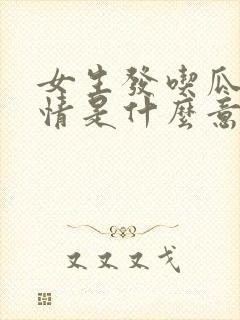 女生發喫瓜
情是什麼意
又又又戈